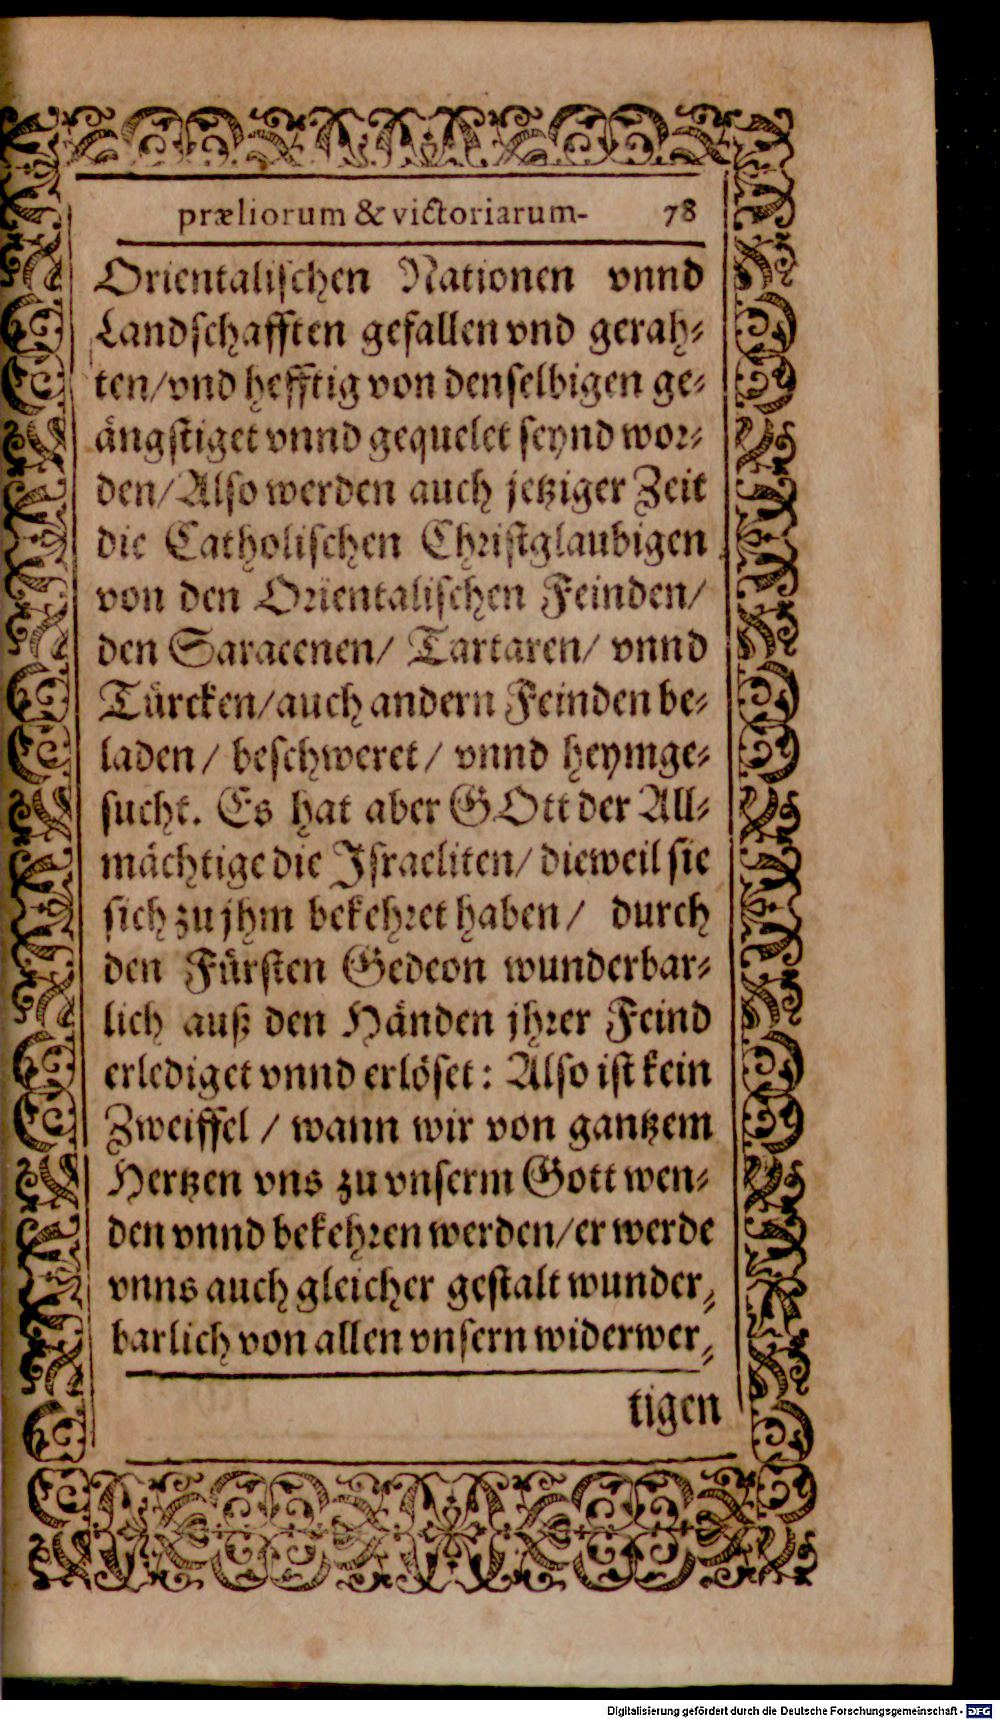 præliorum & victoriarum- 78
Orientalischen Nationen vnnd
Landschafften gefallen vnd gerah-
ten/vnd hefftig von denselbigen ge-
ängstiget vnnd gequelet seynd wor-
den/Also werden auch jetziger Zeit
die Catholischen Christglaubigen
von den Orientalischen Feinden/
den Saracenen/ Tartaren/ vnnd
Türcken/auch andern Feinden be-
laden/ beschweret/ vnnd heymge-
sucht. Es hat aber GOtt der All-
mächtige die Israeliten/ dieweil sie
sich zu jhm bekehret haben/ durch
den Fürsten Gedeon wunderbar-
lich auß den Händen jhrer Feind
erlediget vnnd erlöset: Also ist kein
Zweiffel / wann wir von gantzem
Hertzen vns zu vnserm Gott wen-
den vnnd bekehren werden/er werde
vnns auch gleicher gestalt wunder-
barlich von allen vnsern widerwer-
tigen
Digitalisierung gefördert durch die Deutsche Forschungsgemeinschaft - DFG